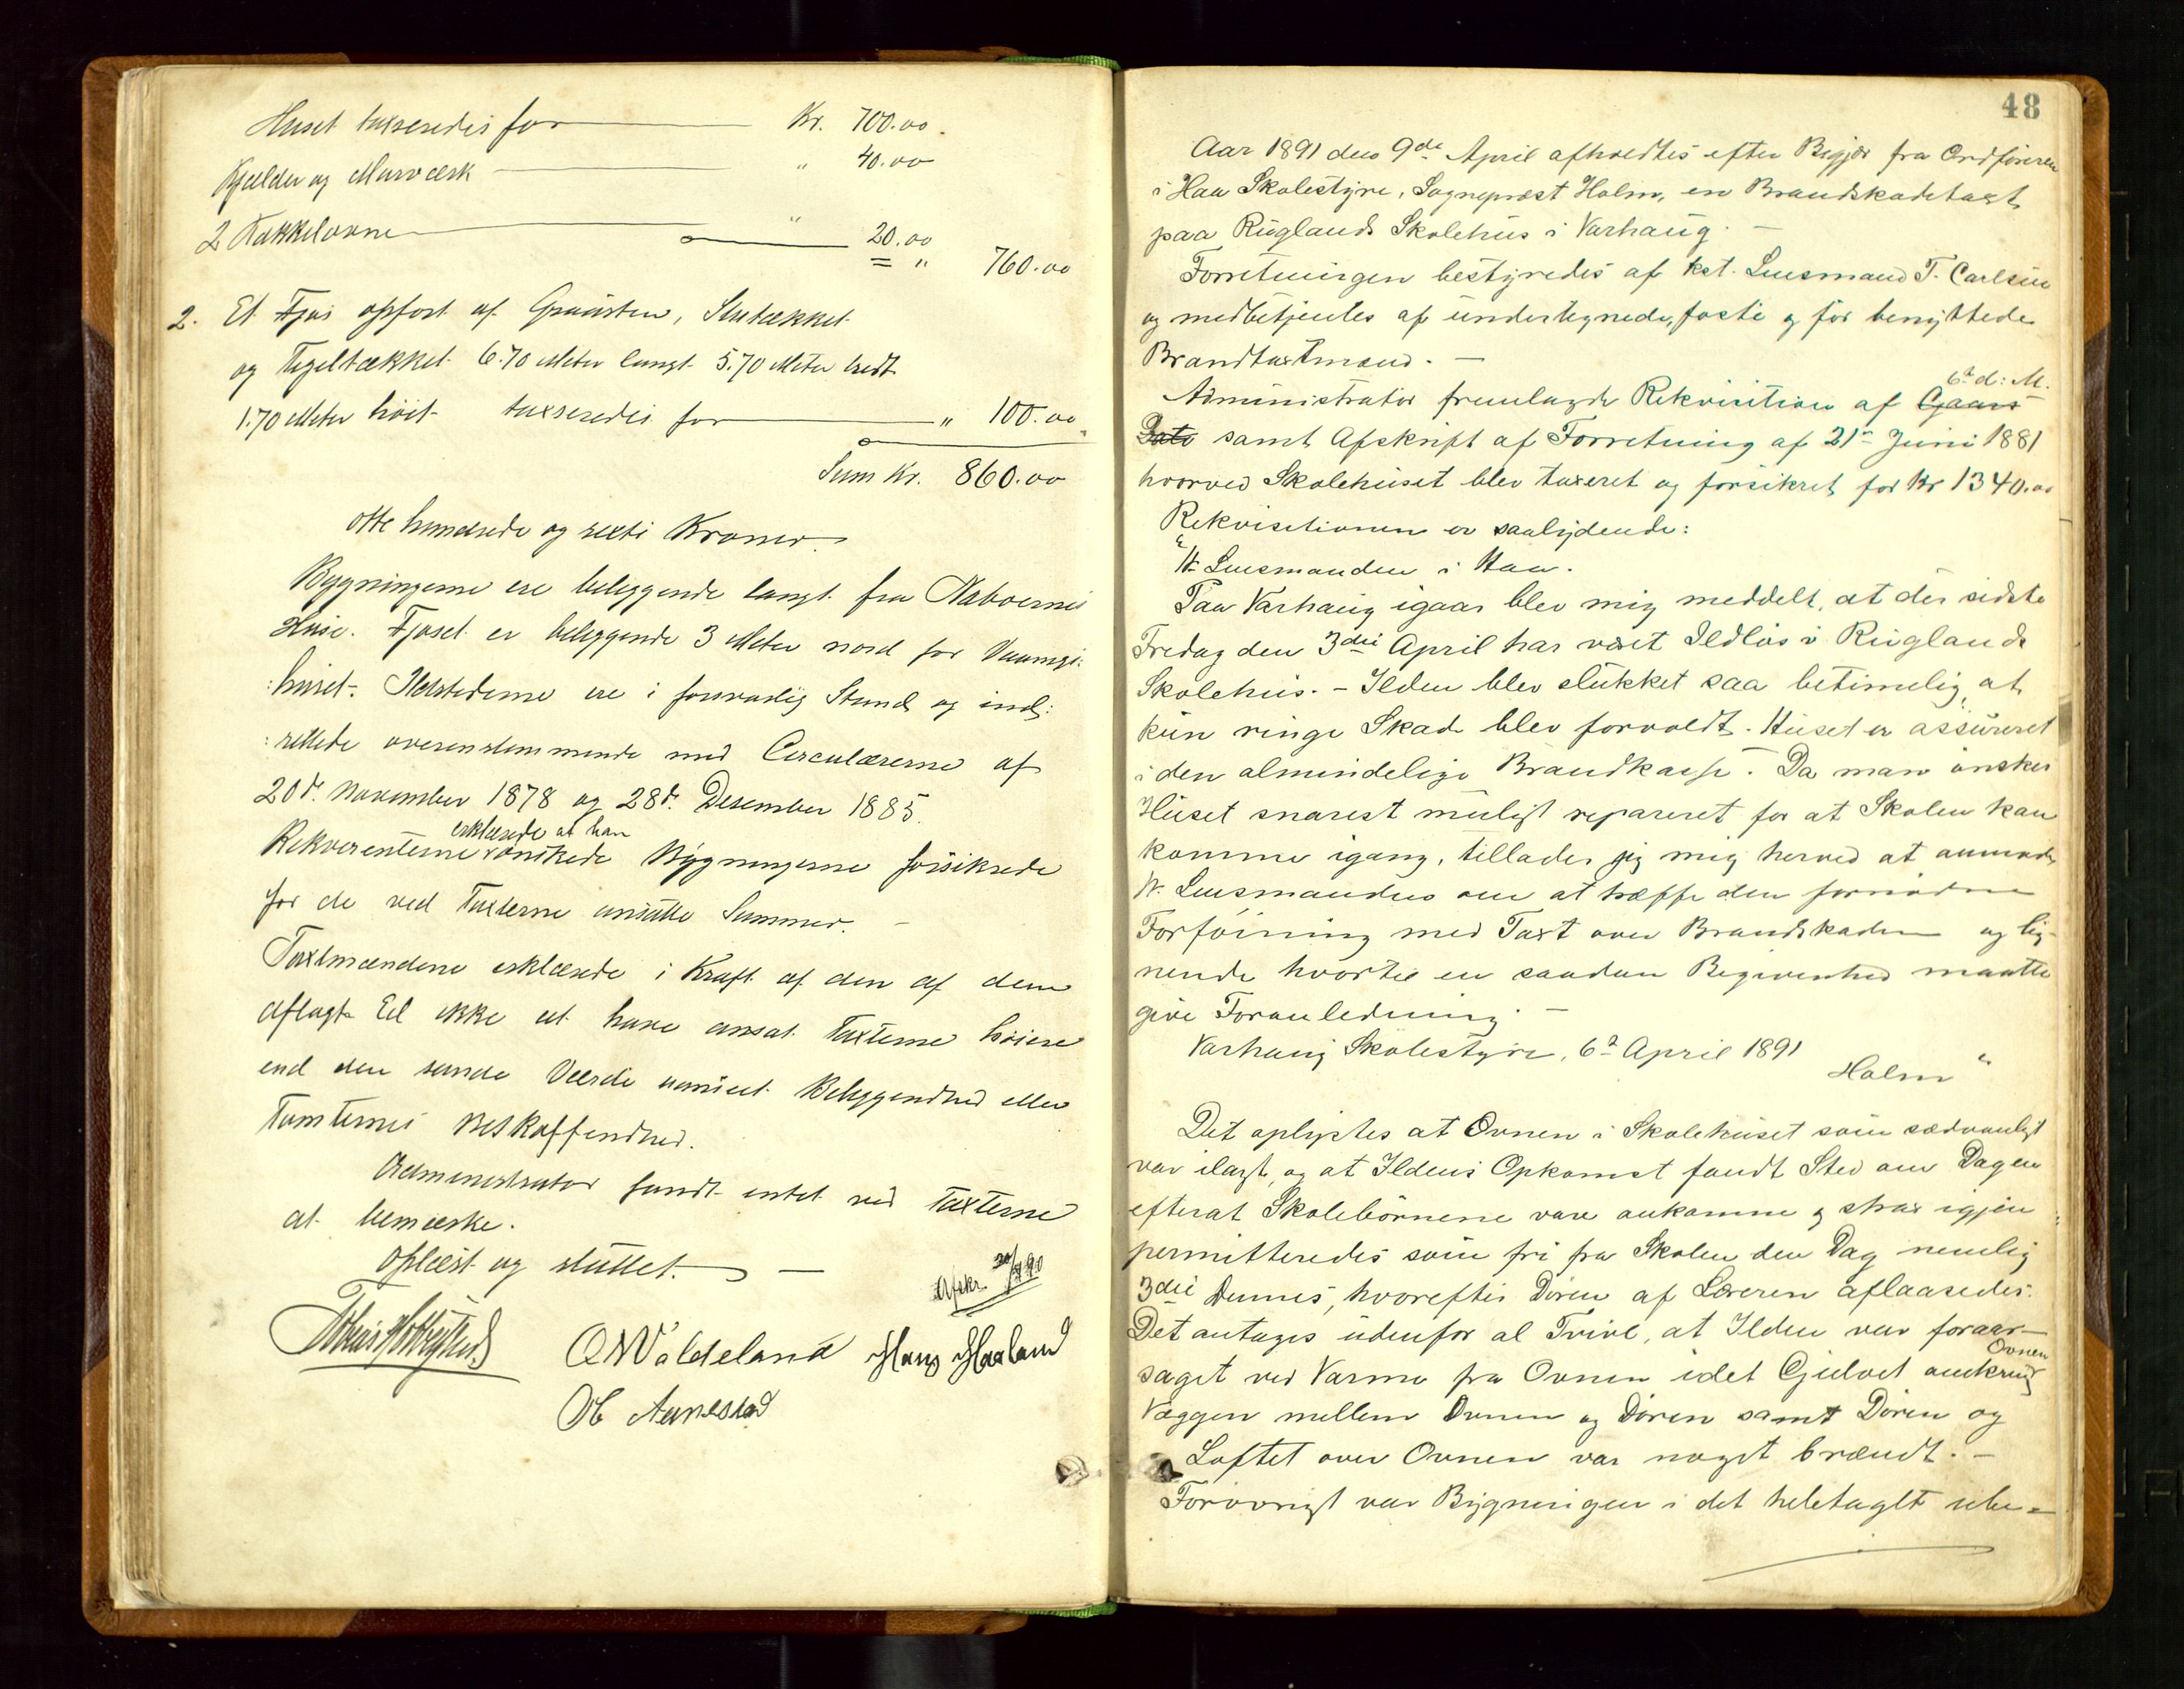 Huset taxseredes for Kr. 700.00.
Kjælder og Murværk " 40.00
2 Kakkelovne " 20.00
= " 760.00
2. Et Fjøs opført af Graasten, Stutækket
og Tegeltækket 6.70 Meter langt 5.70 Meter bredt
1.70 Meter høit taxseredes for " 100.00
Sum Kr. 860.00
otte hundrede og sexti Kroner.
Bygningerne ere beliggende langt fra Naboernes
Huse. Fjøset er beliggende 3 Meter nord for Vaanings:
:huset. Ildstederne ere i forsvarlig Stand og ind:
:rettede overenstemmende med Circulærerne af
20de November 1878 og 28de Desember 1885.
erklærede at han
Rekverenterne ønskede Bygningerne forsikrede
for de ved Taxterne ansatte Summer. –
Taxtmændene erklærede i Kraft af den af dem
aflagte Ed ikke at have ansat Taxterne høiere
end den sande Værdi uanseet Beliggendhed eller
Tomternes Beskaffendhed.
Administrator fandt intet ved Taxterne
at bemærke.
Oplæst og sluttet. –
Afskr.
O N Valdeland Hans Haaland
48
Aar 1891 den 9de April afholdtes efter Begjær fra Ordføreren
i Haa Skolestyre, Sognepræst Holm, en Brandskadetaxt
paa Ruglands Skolehus i Varhaug. –
Forretningen bestyredes af kst. Lensmand T. Carlsen
og medbetjentes af undertegnede, faste og før benyttede
Brandtaxtmænd. –
6te d: M.
Administrator fremlagde Rekvisition af Gaars
Dato samt Afskrift af Forretning af 21de Juni 1881
hvorved Skolehuset blev taxeret og forsikret for Kr 1340.00
Rekvisitionen er saalydende:
"Hr Lensmanden i Haa.
Paa Varhaug igaar blev mig meddelt, at der sidste
Fredag den 3die April har været Ildløs i Ruglands
Skolehus. – Ilden blev slukket saa betimelig, at
kun ringe Skade blev forvoldt. Huset er assureret
i den almindelige Brandkasse. Da man ønsker
Huset snarest muligt repareret for at Skolen kan
komme igang, tillader jeg mig herved at anmode
Hr. Lensmanden om at træffe den fornødne
Forføining med Taxt over Brandskaden og lig-
nende hvortil en saadan Begivenhed maatte
give Foranledning. –
Varhaug Skolestyre, 6te April 1891
Holm"
Det oplystes at Ovnen i Skolehuset som sædvanligt
var ilagt, og at Ildens Opkomst fandt Sted om Dagen
efterat Skolebørnene vare ankomne og strax igjen
permitteredes som fri fra Skolen den Dag nemlig
3die Dennes, hvorefter Døren af Læreren aflaasedes.
Det antages udenfor al Tvivl, at Ilden var foraar-
saget ved Varme fra Ovnen idet Gulvet omkring Ovnen
Væggen mellem Ovnen og Døren samt Døren og
Loftet over Ovnen var noget brændt. –
Forøvrigt var Bygningen i det heletaget ube=